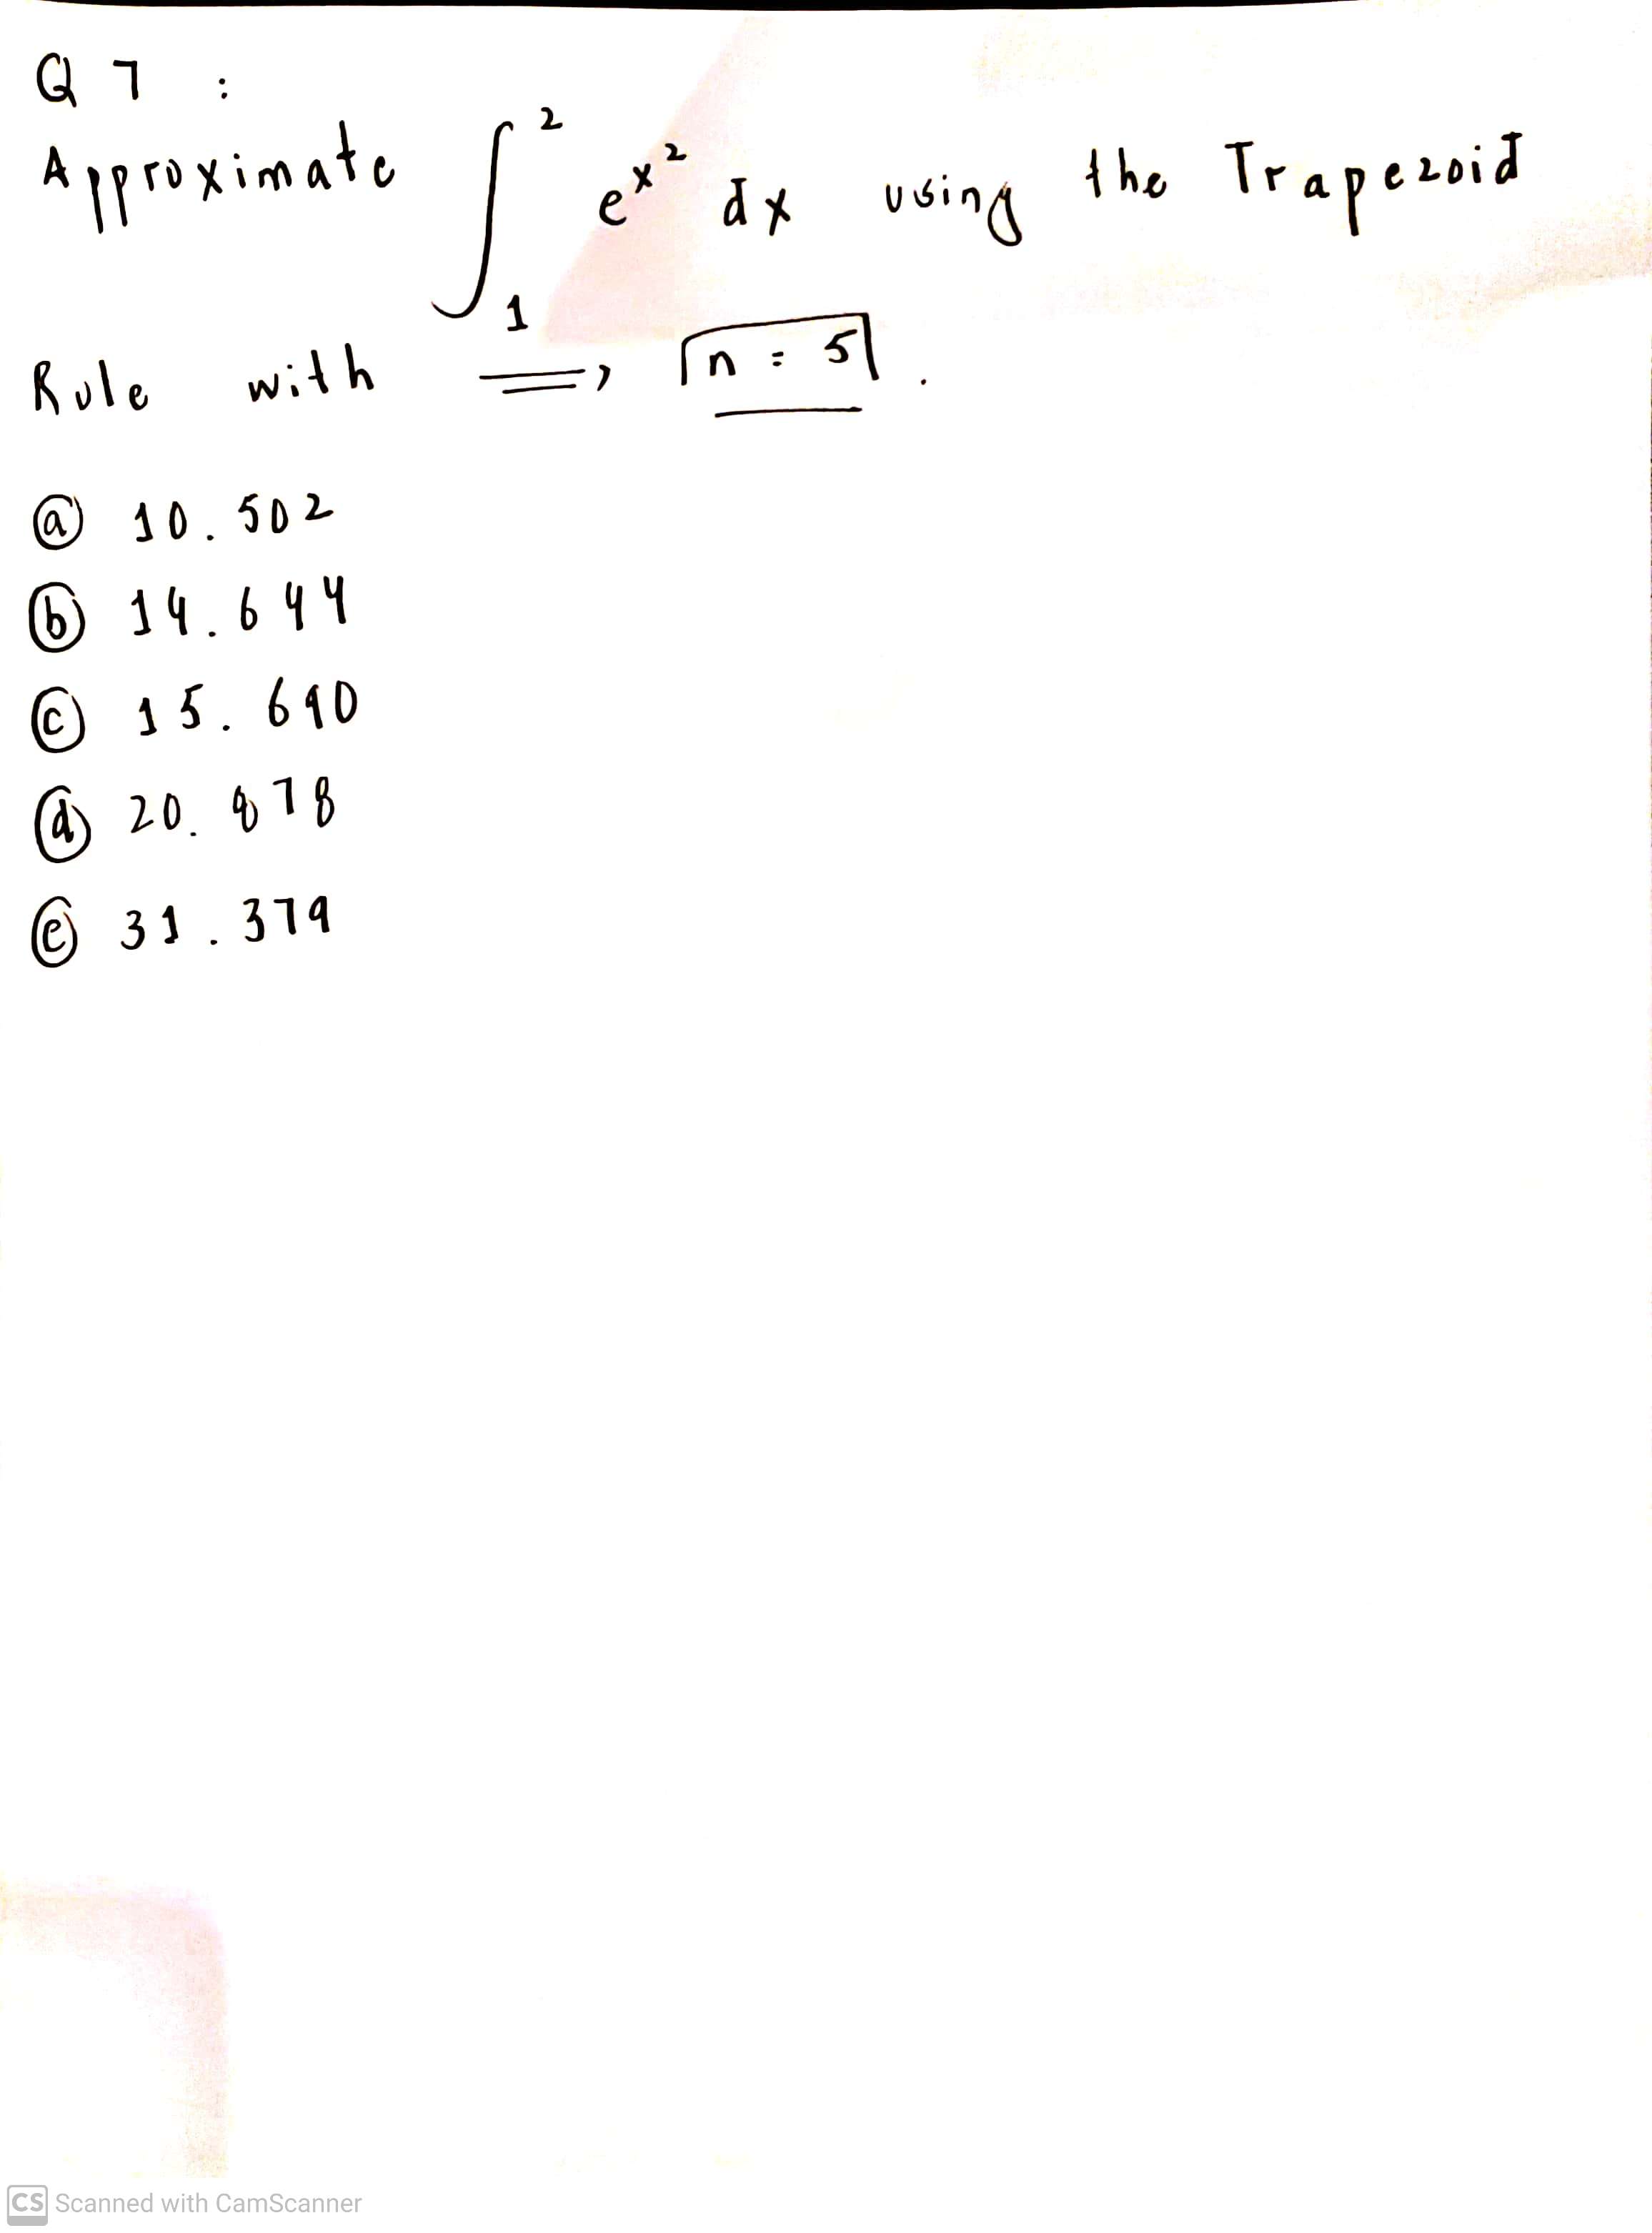 Q 7 :
Approximate ∫₁² eˣ² dx using the Trapezoid
Rule with => n = 5 .
(a) 10.502
(b) 14.644
(c) 15.690
(d) 20.878
(e) 31.379
CS Scanned with CamScanner